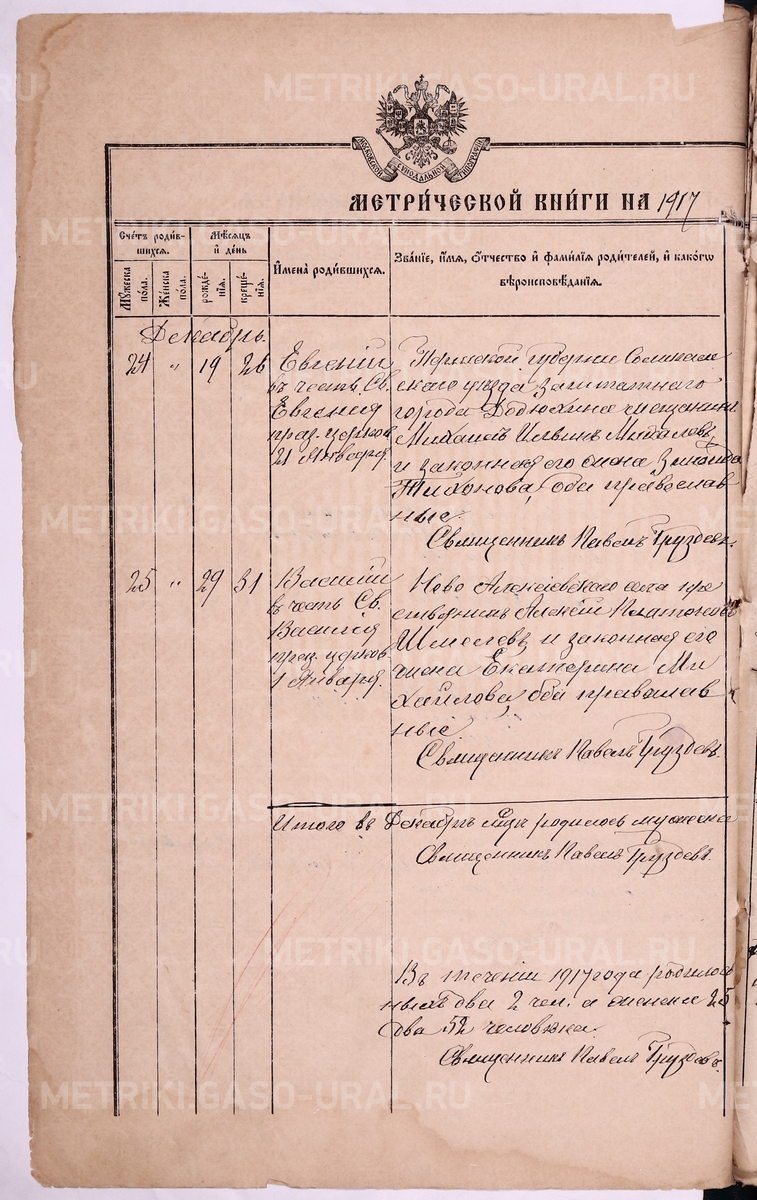 METRIKI.GASO-URAL.RU
МОСКОВСКОЙ СѴНОДАЛЬНОЙ ТИПОГРАФІИ
МЕТРИ́ЧЕСКОЙ КНИ́ГИ НА 1917
Сче́тъ роди́в-
шихся.
Мѣсяцъ
и де́нь
Имена̀ роди́вшихся.
Зва́ніе, и́мя, о́тчество и фами́лія роди́телей, и како́гѡ
вѣроисповѣ́данія.
Му́жеска
по́ла.
Же́нска
по́ла.
рожде́-
нія.
креще́-
нія.
Декабрь.
24 " 19 26
Евгеній
въ честь Св.
Евгенія
праз. церков
21 Января
Пермской губерніи Соликам
скаго уѣзда заштатнаго
города Дедюхина мещанинъ
Михаилъ Ильинъ
и законная его жена Зинаида
Тихонова, оба православ
ные
Священникъ Павелъ Груздевъ.
25 " 29 31
Василій
въ честь Св.
Василія
праз. церков.
1 Января.
Ново Алексѣевскаго села кре
стьянинъ Алексѣй Платоновъ
Шмелевъ и законная его
жена Екатерина Ми
хайлова, оба православ
ные
Священникъ Павелъ Груздевъ.
Итого въ Декабрѣ родилось мужеска
Священникъ Павелъ Груздевъ.
Въ теченіи 1917 года родилось
два 2 чел. а женска 25
два 52 человѣка.
Священникъ Павелъ Груздевъ.